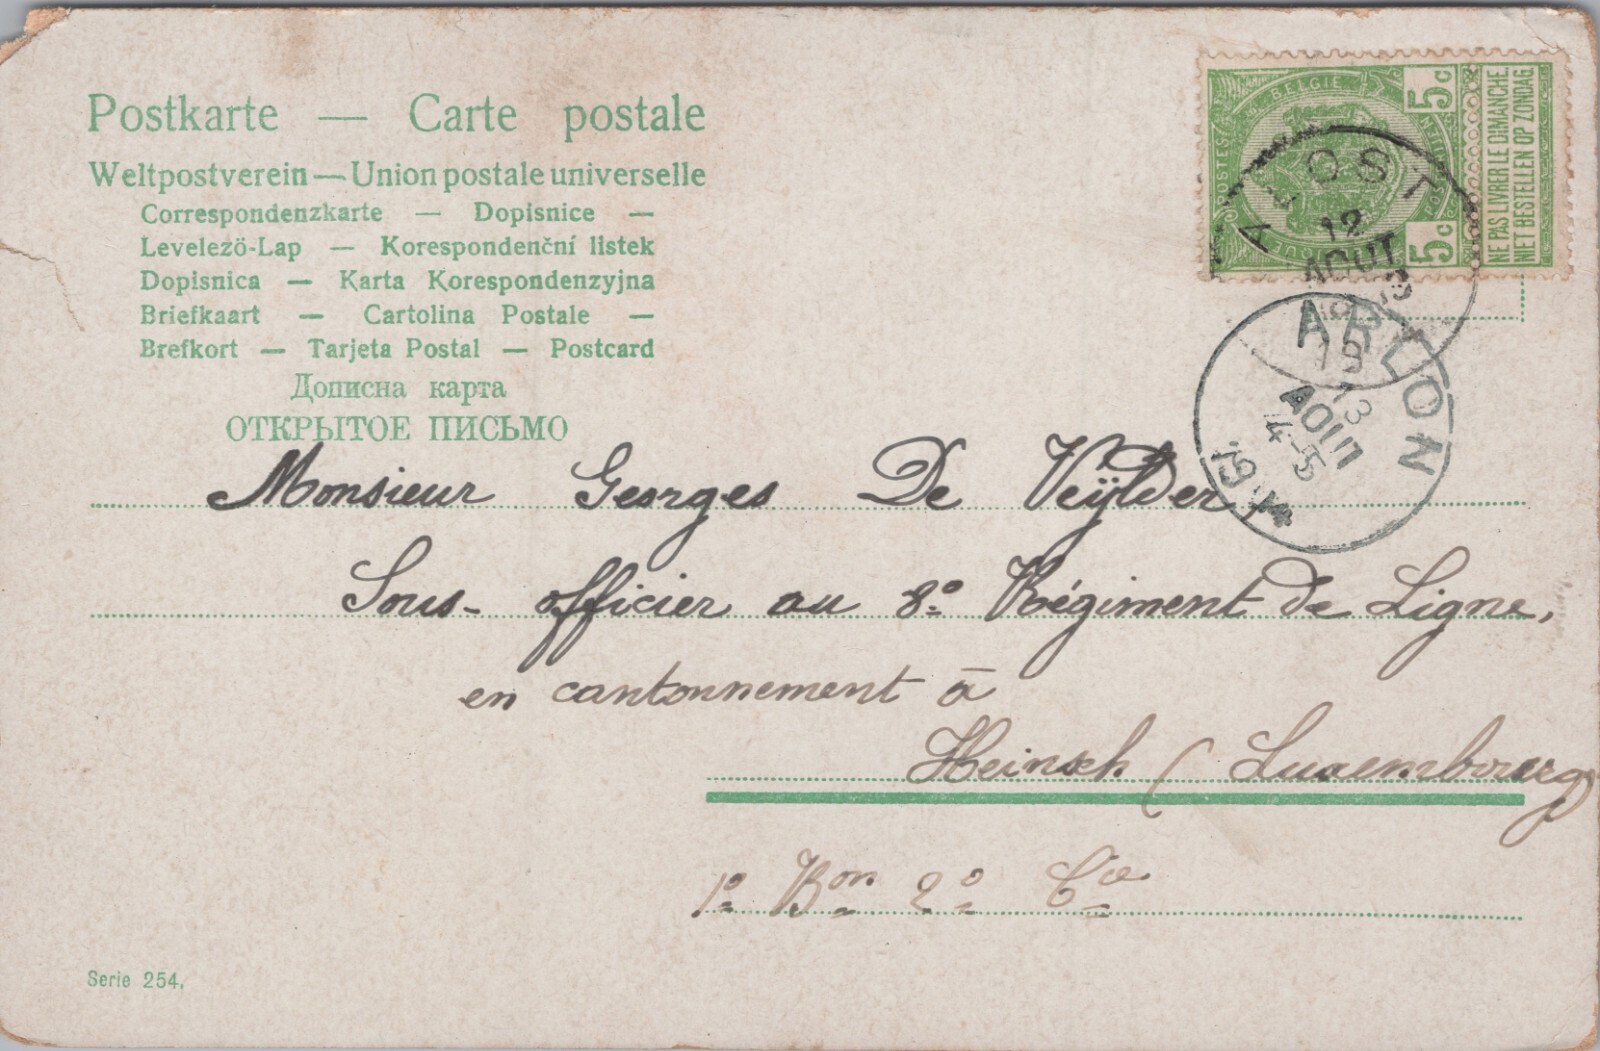 Postkarte — Carte postale
Weltpostverein — Union postale universelle
Correspondenzkarte — Dopisnice —
Levelezö-Lap — Korespondenční listek
Dopisnica — Karta Korespondenzyjna
Briefkaart — Cartolina Postale —
Brefkort — Tarjeta Postal — Postcard
Дописна карта
ОТКРЫТОЕ ПИСЬМО
5c 5c
BELGIE
POSTES
NE PAS LIVRER LE DIMANCHE.
NIET BESTELLEN OP ZONDAG.
ALOST
12
AOUT
ARLON
13
AOUT
14-15
Monsieur Georges De Veÿlder
Sous-officier au 8e Régiment de Ligne,
en cantonnement à
Heinsch (Luxembourg
1e Bon 2e Cie
Serie 254.